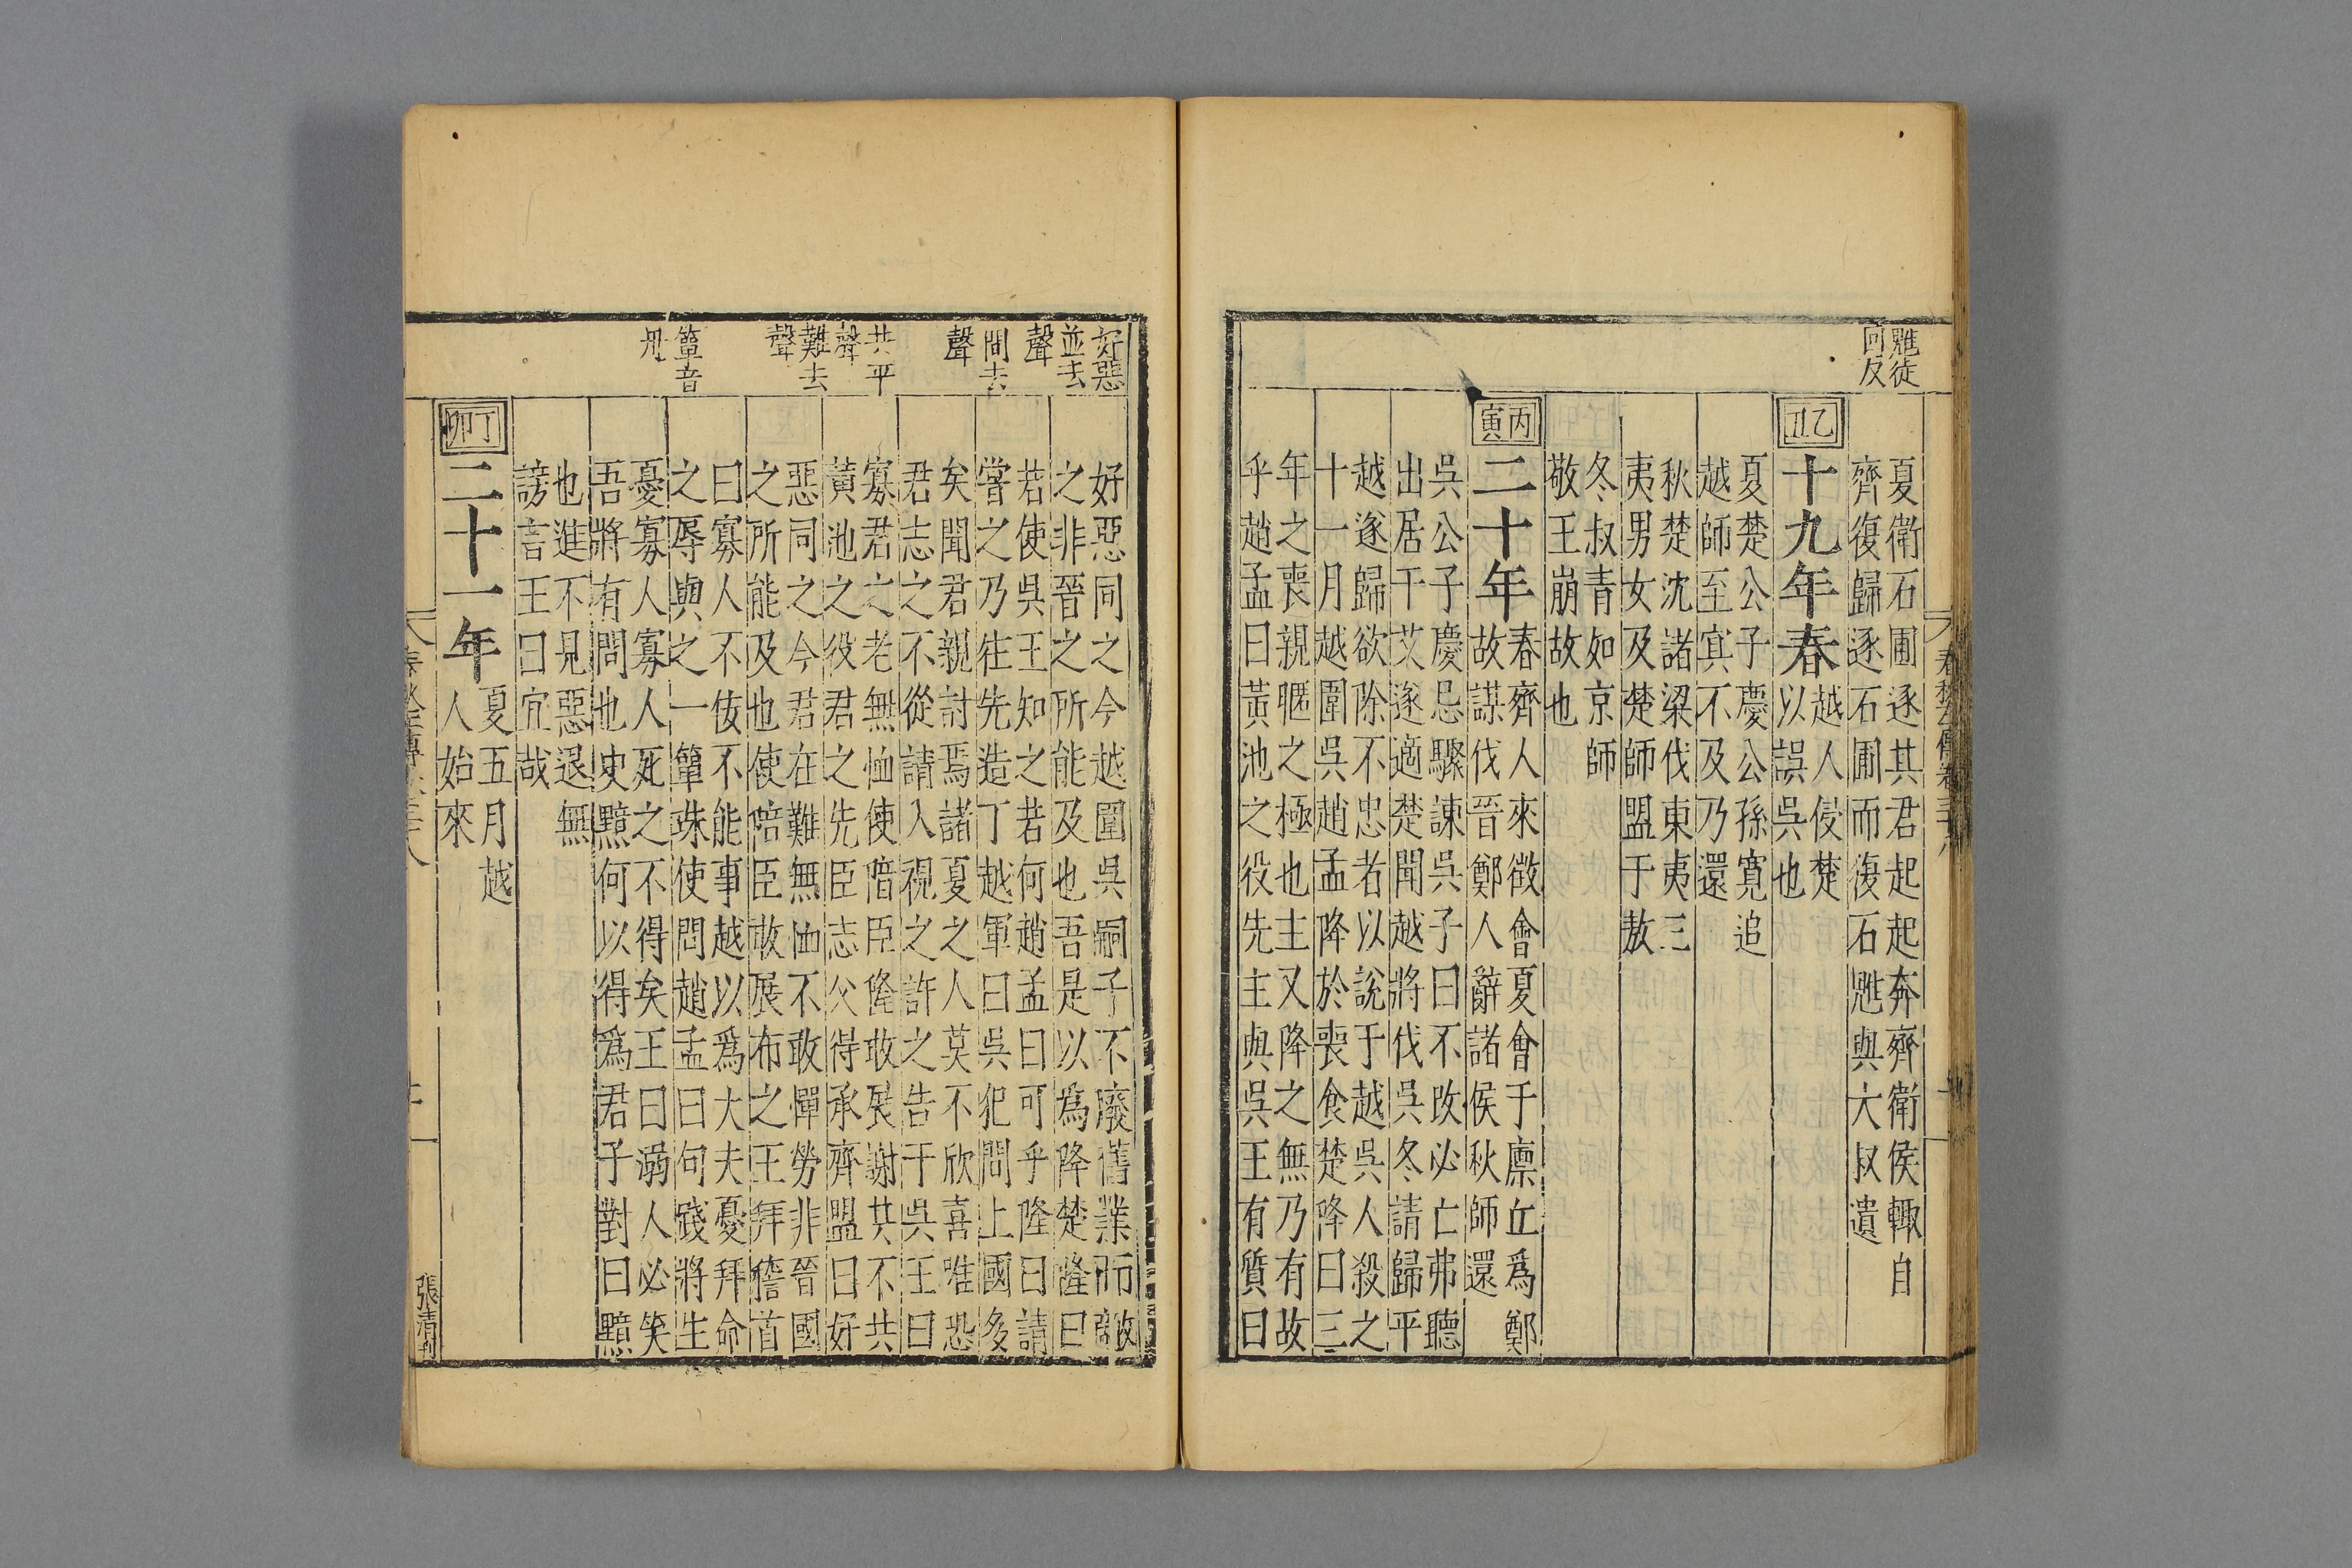 魋徒
回反
夏衛石圃逐其君起起奔齊衛侯輙自
齊復歸逐石圃而復石魋與大叔遺
乙丑
十九年春越人侵楚
以誤吳也
夏楚公子慶公孫寬追
越師至㝠不及乃還
秋楚沈諸梁伐東夷三
夷男女及楚師盟于敖
冬叔青如京師
敬王崩故也
丙寅
二十年春齊人來徵會夏會于廩丘爲鄭
故謀伐晉鄭人辭諸侯秋師還
吳公子慶忌驟諫吳子曰不改必亡弗聽
出居于艾遂適楚聞越將伐吳冬請歸平
越遂歸欲除不忠者以說于越吳人殺之
十一月越圍吳趙孟降於喪食楚隆曰三
年之喪親暱之極也主又降之無乃有故
乎趙孟曰黃池之役先主與吳王有質曰
好惡
並去
聲
間去
聲
共平
聲
難去
聲
簞音
丹
好惡同之今越圍吳嗣子不廢舊業而敵
之非晉之所能及也吾是以爲降楚隆曰
若使吳王知之若何趙孟曰可乎隆曰請
嘗之乃往先造于越軍曰吳犯間上國多
矣聞君親討焉諸夏之人莫不欣喜唯恐
君志之不從請入視之許之告于吳王曰
寡君之老無恤使陪臣隆敢展謝其不共
黃池之役君之先臣志父得承齊盟曰好
惡同之今君在難無恤不敢憚勞非晉國
之所能及也使陪臣敢展布之王拜稽首
曰寡人不佞不能事越以爲大夫憂拜命
之辱與之一簞珠使問趙孟曰句踐將生
憂寡人寡人死之不得矣王曰溺人必笑
吾將有問也史黯何以得爲君子對曰黯
也進不見惡退無
謗言王曰宜哉
丁卯
二十一年夏五月越
人始來
張清刊